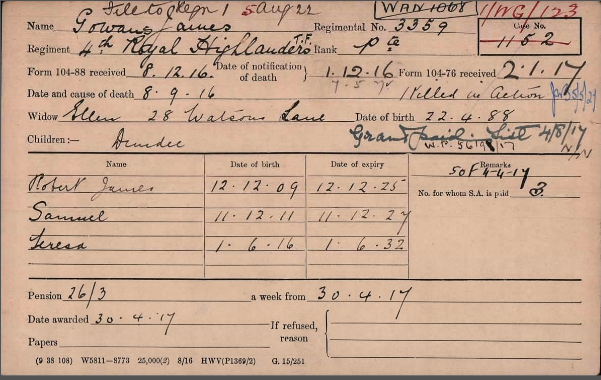 File to 1 5 Aug 22
WAD 1008
11/WG/123
Name Gowans James Regimental No. 3359 Case No.
Regiment 4th Royal Highlanders T.F. Rank Pte 1152
Form 104-88 received 8.12.16 Date of notification of death } 1.12.16 Form 104-76 received 2.1.17
Date and cause of death 8-9-16 Killed in Action
Widow Ellen 28 Watsons Lane Date of birth 22.4.88
Children:— Dundee 4/8/17
Name Date of birth Date of expiry Remarks
Robert James 12.12.09 12.12.25 4-4-17
No. for whom S.A. is paid 3
Samuel 11.12.11 11.12.27
Teresa 1.6.16 1.6.32
Pension 26/3 a week from 30.4.17
Date awarded 30.4.17
If refused, reason
Papers
(9 38 108) W5811—8773 25,000(2) 8/16 HWV(P1369/2) G. 15/251